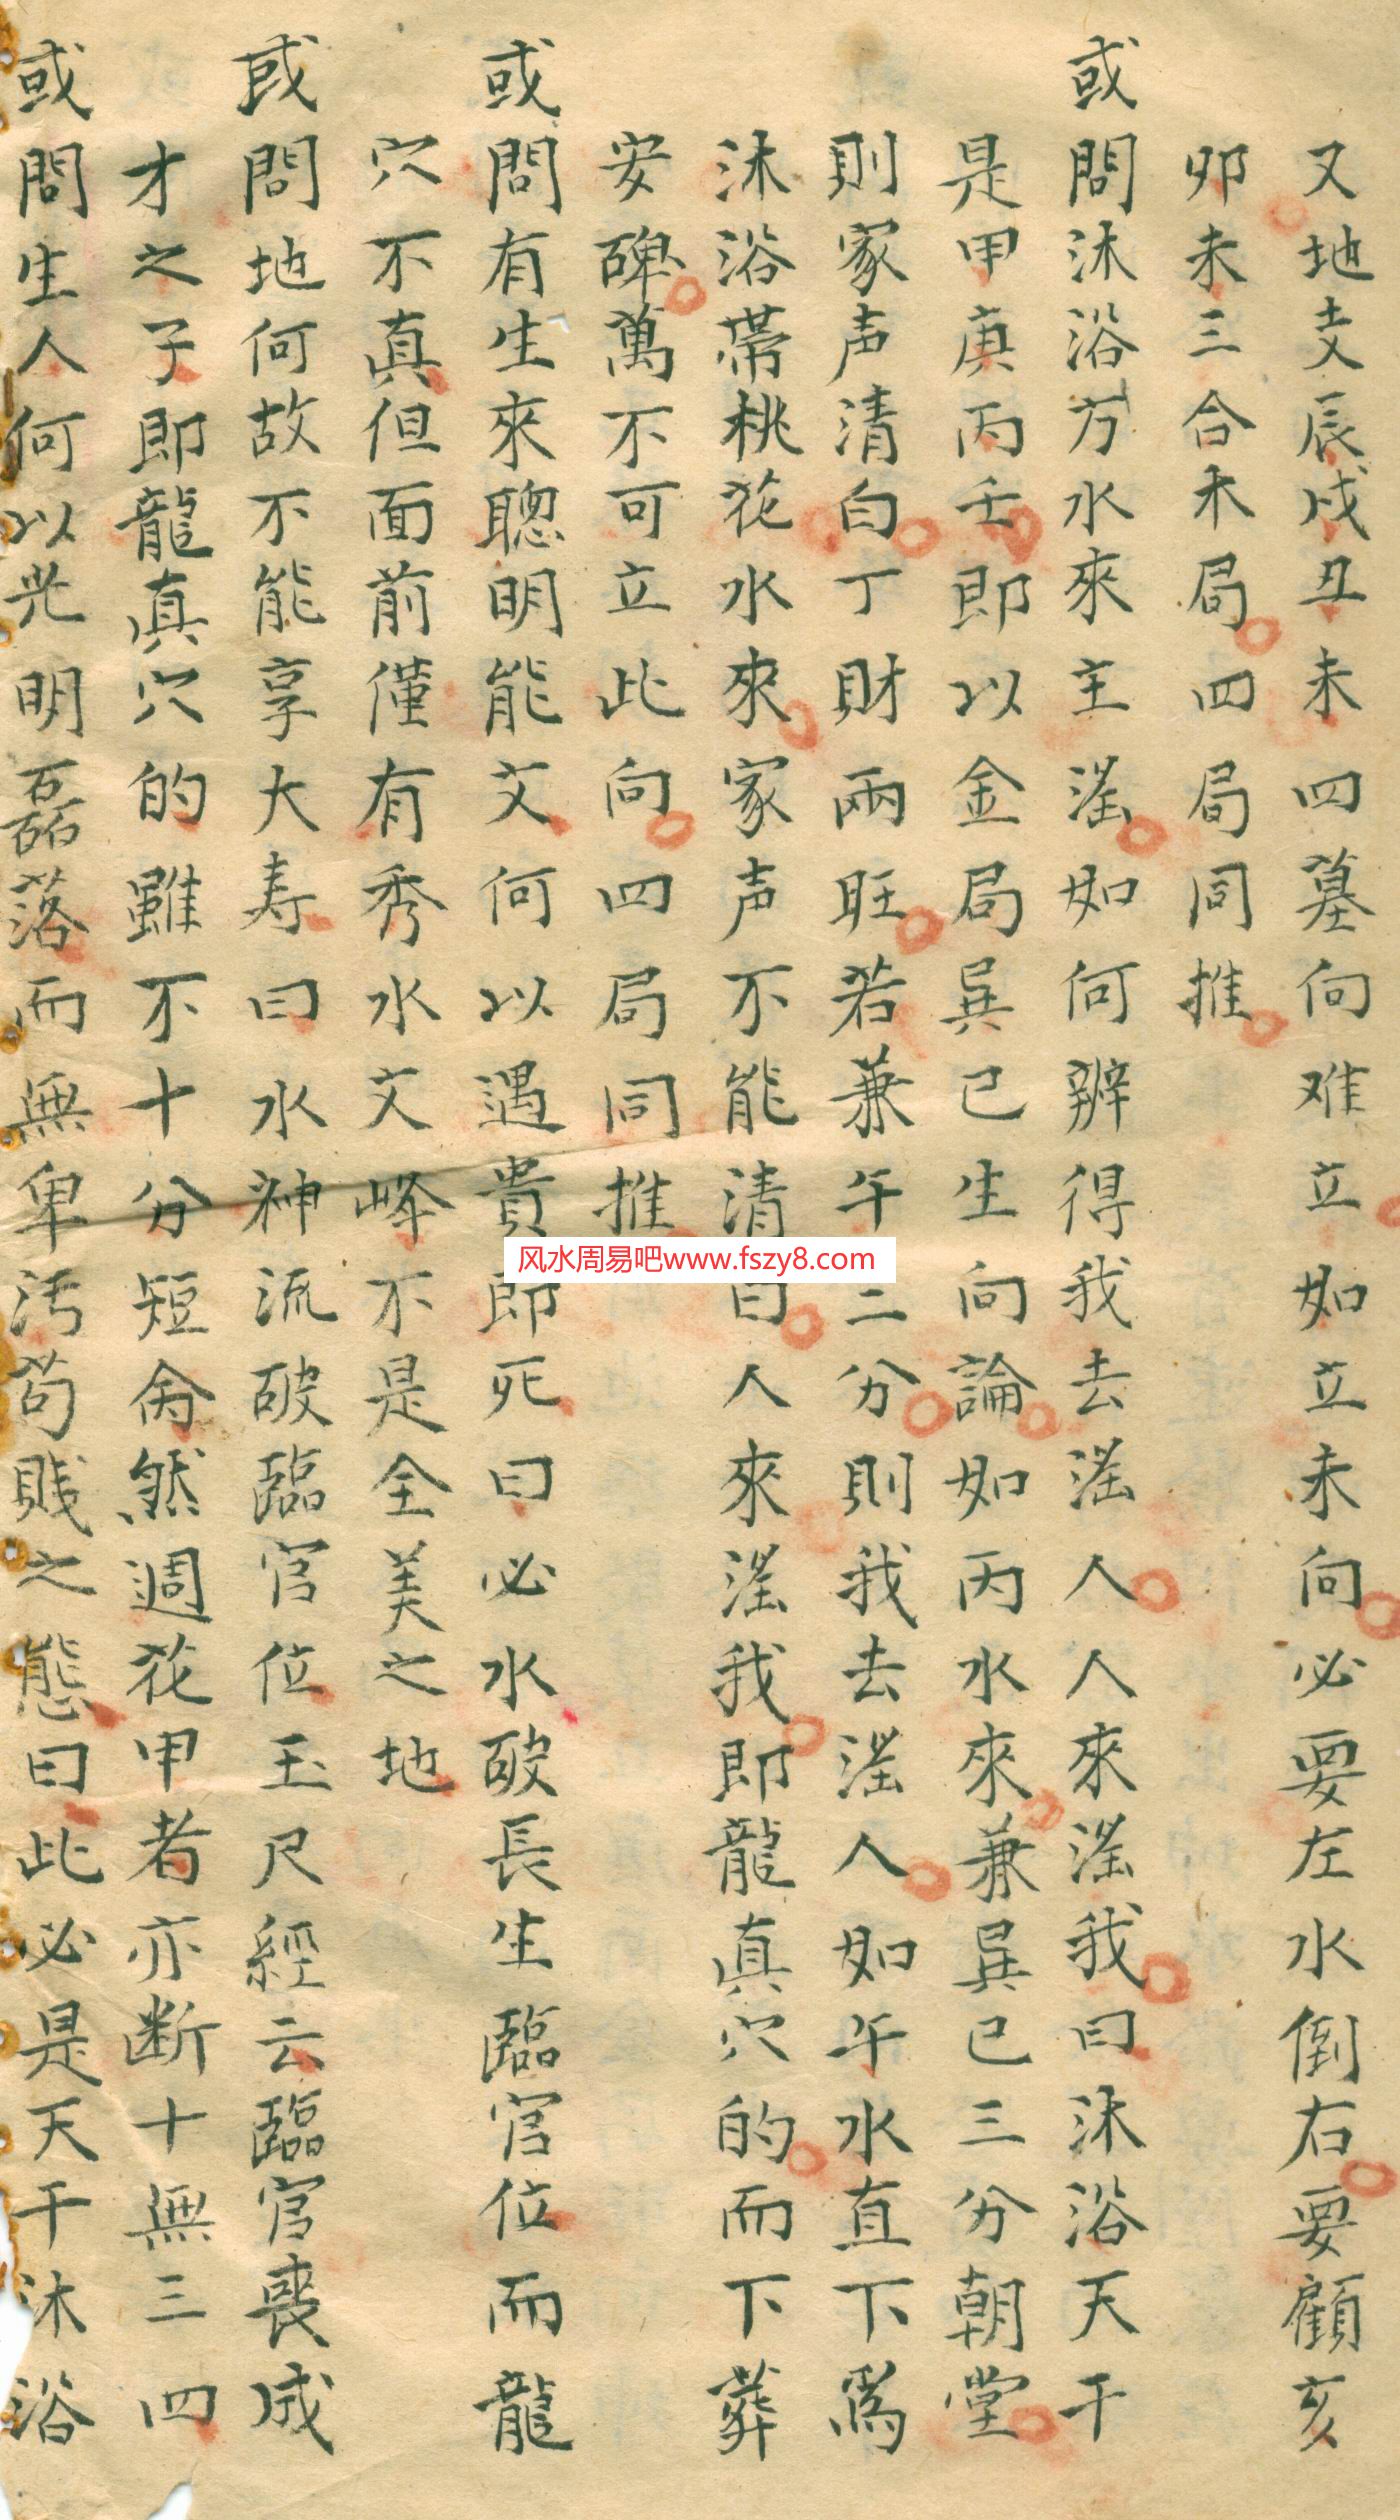 又地支辰戌丑未四墓向难立如立未向必要左水倒右要顧亥
卯未三合木局四局同推
或問沐浴方水來主滛如何辨得我去滛人人來滛我曰沐浴天干
是甲庚丙壬即以金局巽巳生向論如丙水來兼巽巳三分朝堂
則家声清白丁財兩旺若兼午二分則我去滛人如午水直下為
沐浴帶桃花水來家声不能清白人來滛我即龍真穴的而下葬
安碑萬不可立此向四局同推
或問有生來聰明能文何以遇貴即死曰必水破長生臨官位而龍
穴不真但面前僅有秀水文峰不是全美之地
或問地何故不能享大寿曰水神流破臨官位玉尺經云臨官喪成
才之子即龍真穴的雖不十分短命然週花甲者亦断十無三四
或問生人何以光明磊落而無卑污苟賤之態曰此必是天干沐浴
风水周易吧www.fszy8.com